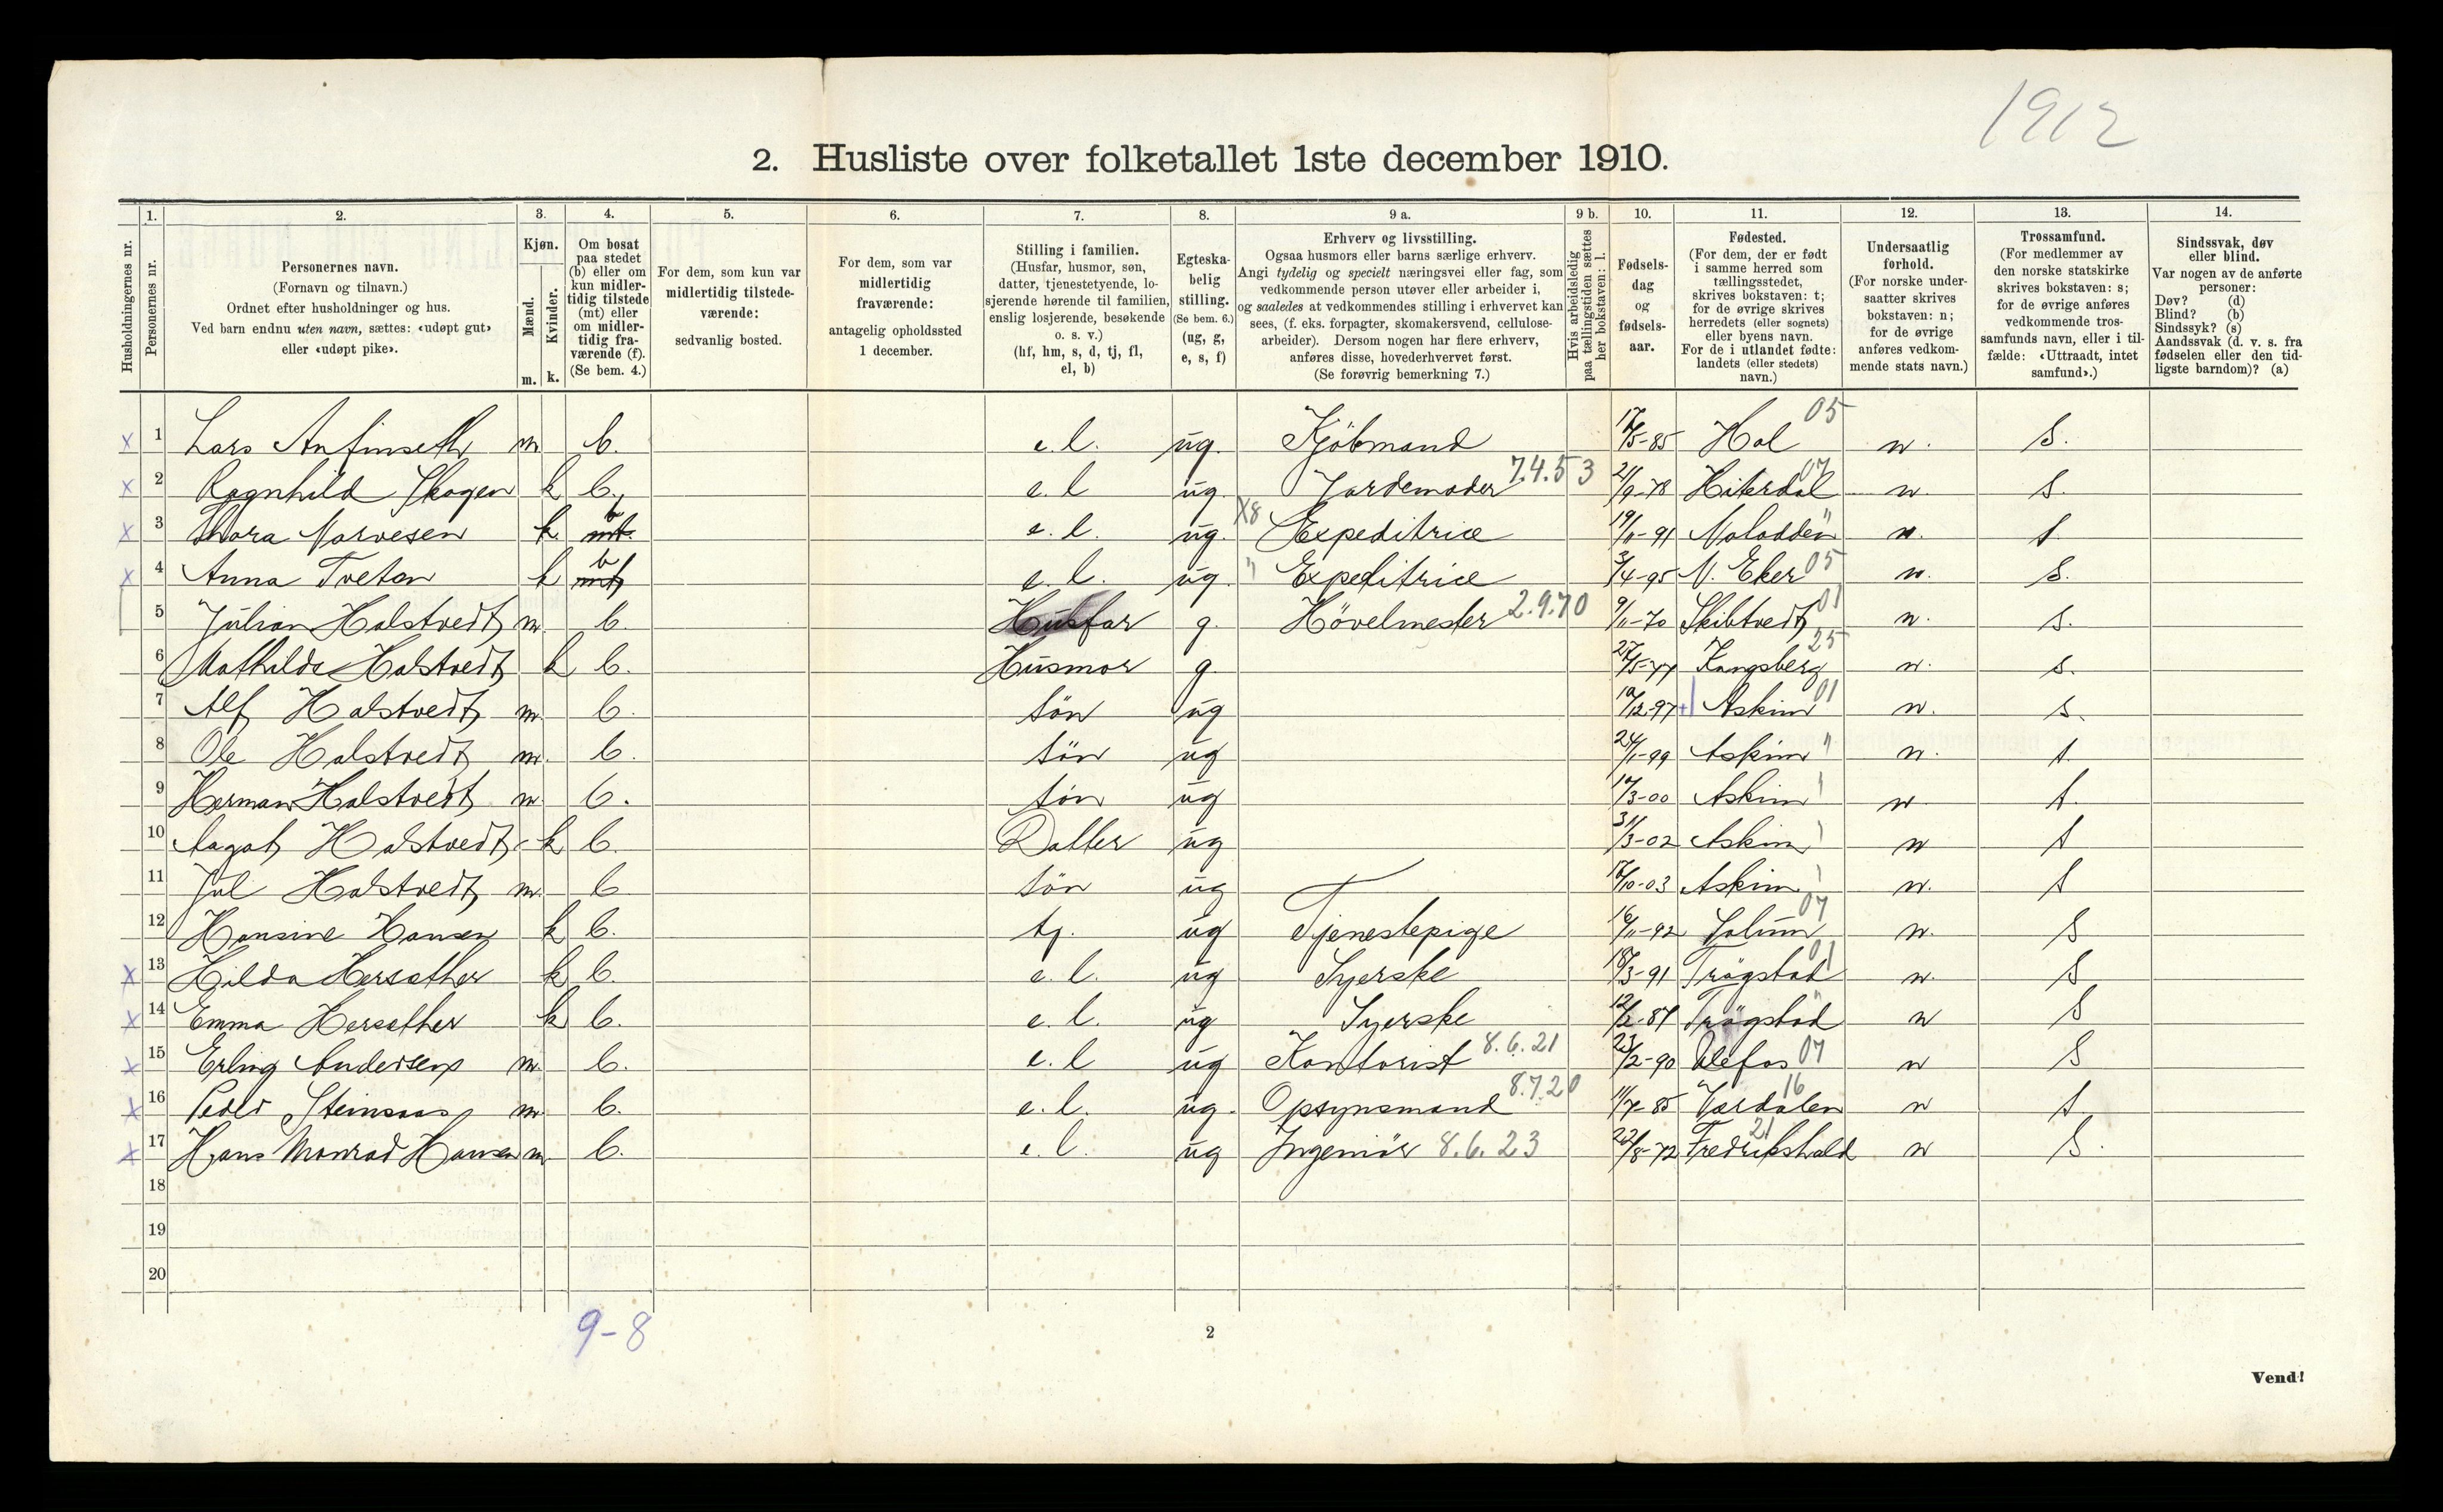 1912
2. Husliste over folketallet 1ste december 1910.
Husholdningernes nr.
1. Personernes nr.
2. Personernes navn. (Fornavn og tilnavn.) Ordnet efter husholdninger og hus. Ved barn endnu uten navn, sættes: «udøpt gut» eller «udøpt pike».
3. Kjøn. Mænd. m. Kvinder. k.
4. Om bosat paa stedet (b) eller om kun midlertidig tilstede (mt) eller om midlertidig fraværende (f). (Se bem. 4.)
5. For dem, som kun var midlertidig tilstedeværende: sedvanlig bosted.
6. For dem, som var midlertidig fraværende: antagelig opholdssted 1 december.
7. Stilling i familien. (Husfar, husmor, søn, datter, tjenestetyende, losjerende hørende til familien, enslig losjerende, besøkende o. s. v.) (hf, hm, s, d, tj, fl, el, b)
8. Egteskabelig stilling. (Se bem. 6.) (ug, g, e, s, f)
9 a. Erhverv og livsstilling. Ogsaa husmors eller barns særlige erhverv. Angi tydelig og specielt næringsvei eller fag, som vedkommende person utøver eller arbeider i, og saaledes at vedkommendes stilling i erhvervet kan sees, (f. eks. forpagter, skomakersvend, cellulosearbeider). Dersom nogen har flere erhverv, anføres disse, hovederhvervet først. (Se forøvrig bemerkning 7.)
9 b. Hvis arbeidsledig paa tællingstiden sættes her bokstaven: l.
10. Fødselsdag og fødselsaar.
11. Fødested. (For dem, der er født i samme herred som tællingsstedet, skrives bokstaven: t; for de øvrige skrives herredets (eller sognets) eller byens navn. For de i utlandet fødte: landets (eller stedets) navn.)
12. Undersaatlig forhold. (For norske undersaatter skrives bokstaven: n; for de øvrige anføres vedkommende stats navn.)
13. Trossamfund. (For medlemmer av den norske statskirke skrives bokstaven: s; for de øvrige anføres vedkommende trossamfunds navn, eller i tilfælde: «Uttraadt, intet samfund».)
14. Sindssvak, døv eller blind. Var nogen av de anførte personer: Døv? (d) Blind? (b) Sindssyk? (s) Aandssvak (d. v. s. fra fødselen eller den tidligste barndom)? (a)
x 1 Lars Anfinseth m b. e. l. ug. Kjöbmand 17/5-85 Hol 05 n. S.
x 2 Ragnhild Skogen k b. e. l ug. Jordemoder 7.4.53 21/9-78 Hiterdal 07 n. S.
x 3 Thora Narvesen k mt b e. l. ug. x8 Expeditrice 19/11-91 Notodden " n. s.
x 4 Anna Tveten k mt b e. l. ug. " Expeditrice 3/4-95 N. Eker 05 n. S.
5 Julian Halstvedt m b Husfar g. Hövelmester 2.9.70 9/11-70 Skibtvedt 01 n. S.
6 Mathilde Halstvedt k b. Husmor g. 27/5-77 Kongsberg 25 n. s.
7 Alf Halstvedt m. b. sön ug 19/12-97 Askim 01 n. s.
8 Ole Halstvedt m. b. sön ug 24/1-99 Askim " n. s.
9 Herman Halstvedt m. b. sön ug 17/3-00 Askim n. s.
10 Aagot Halstvedt k b. Datter ug 31/3-02 Askim n s
11 Jul Halstvedt m. b sön ug 10-03 Askim n. s
12 Hansine Hansen k b. tj. ug Tjenestepige 16/11-92 Solum 07 n. S
x 13 Hilda Hersæther k b. e. l. ug Syerske 18/3-91 Trögstad 01 n. S
x 14 Emma Hersæther k b. e. l. ug Syerske 12/2-87 Trögstad n S
x 15 Erling Andersen m. b. e. l ug Kontorist 8.6.21 23/2-90 Ulefos 07 n S
x 16 Peder Steinsaas m b. e. l. ug. Opsynsmand 8.7.20 11/7-85 Værdalen 16 n s
x 17 Hans Monrad Hansen m b. e. l. ug Ingeniör 8.6.23 22/8-72 Fredrikshald 21 n S.
18
19
20
9-8
2
Vend!